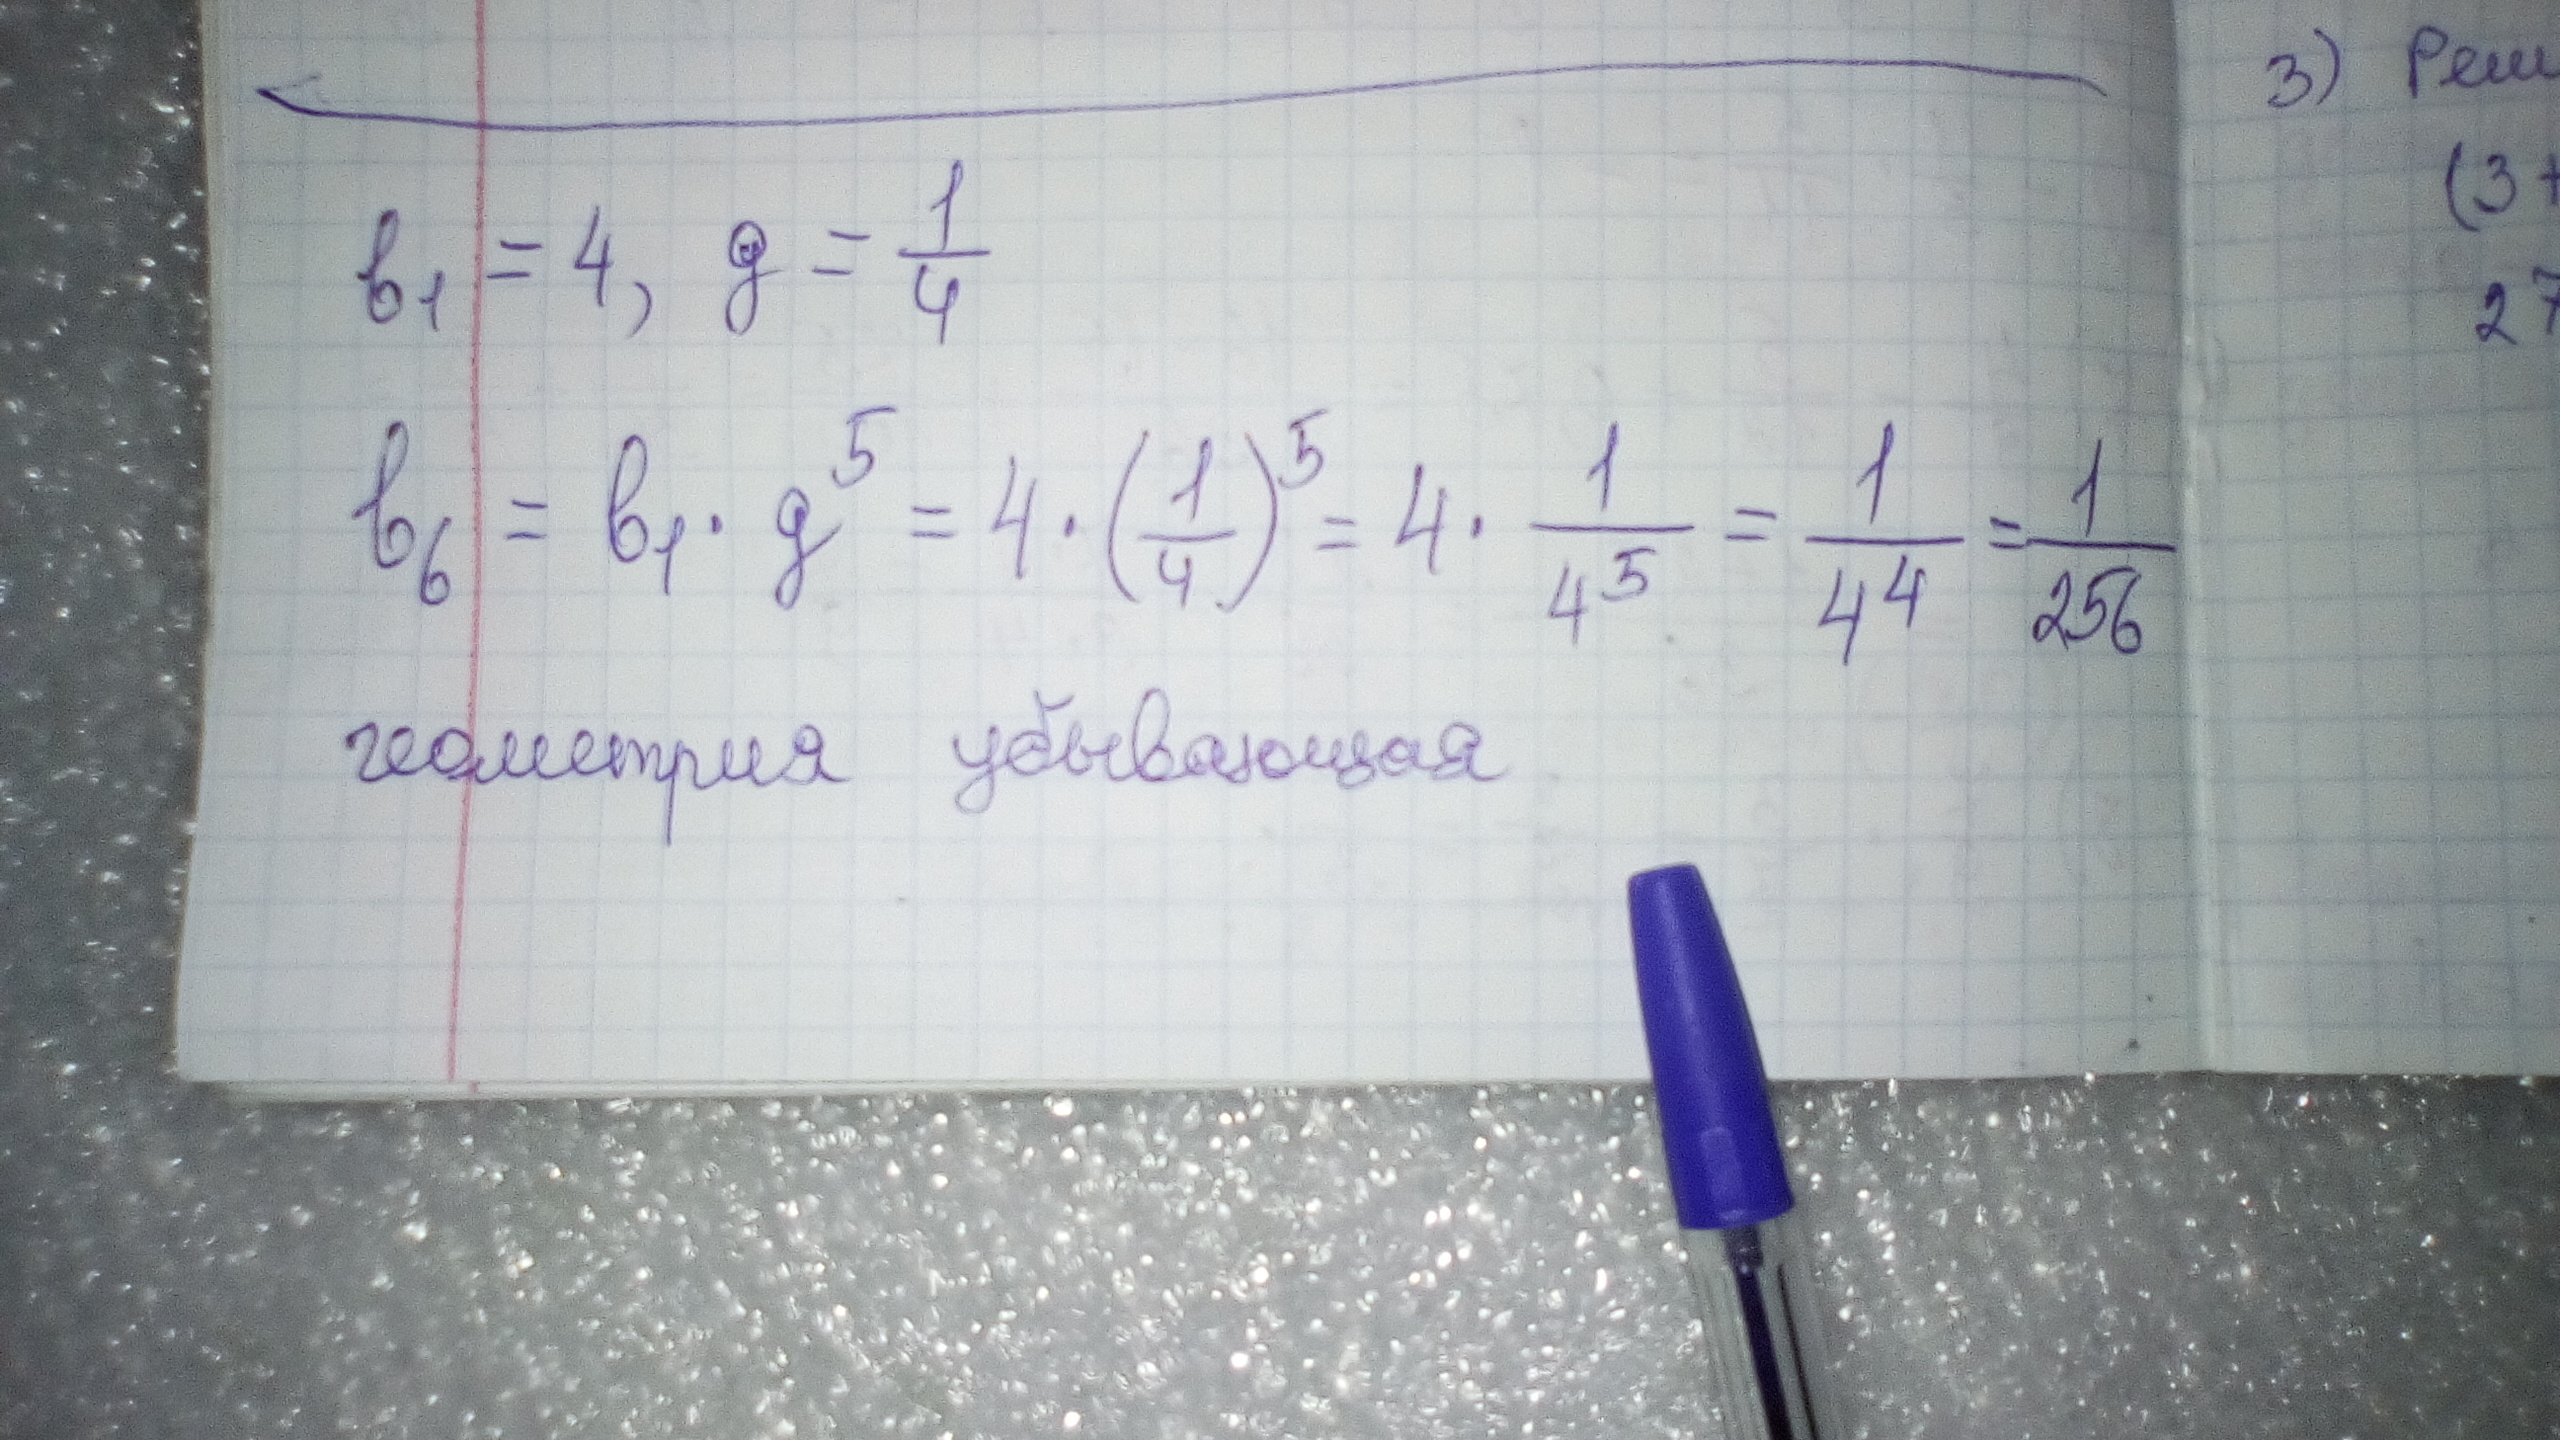 b₁ = 4, g = 1/4
b₆ = b₁ · g⁵ = 4 · (1/4)⁵ = 4 · 1/4⁵ = 1/4⁴ = 1/256
геометрия убывающая
3) Реш
(3+
27